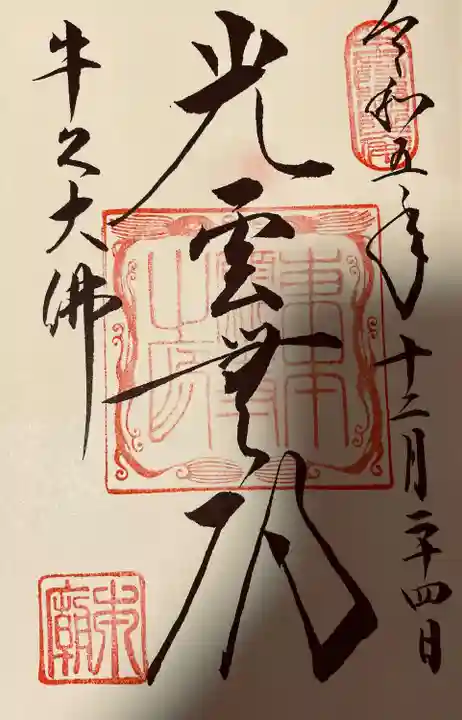 令和五年十二月二十四日
光雲無碍
牛久大佛
東本
願寺
之印